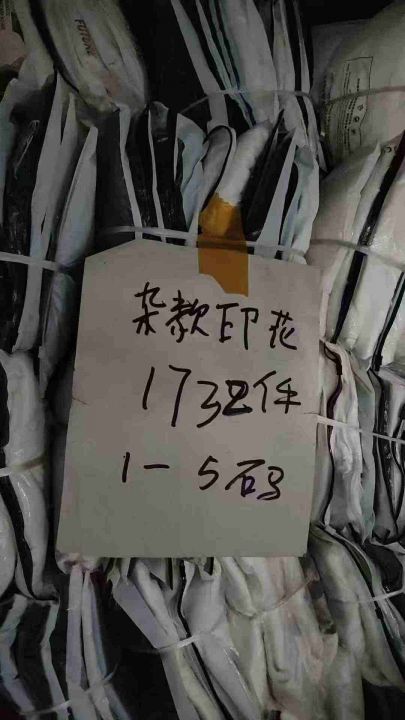 杂款印花
1732件
1-5码